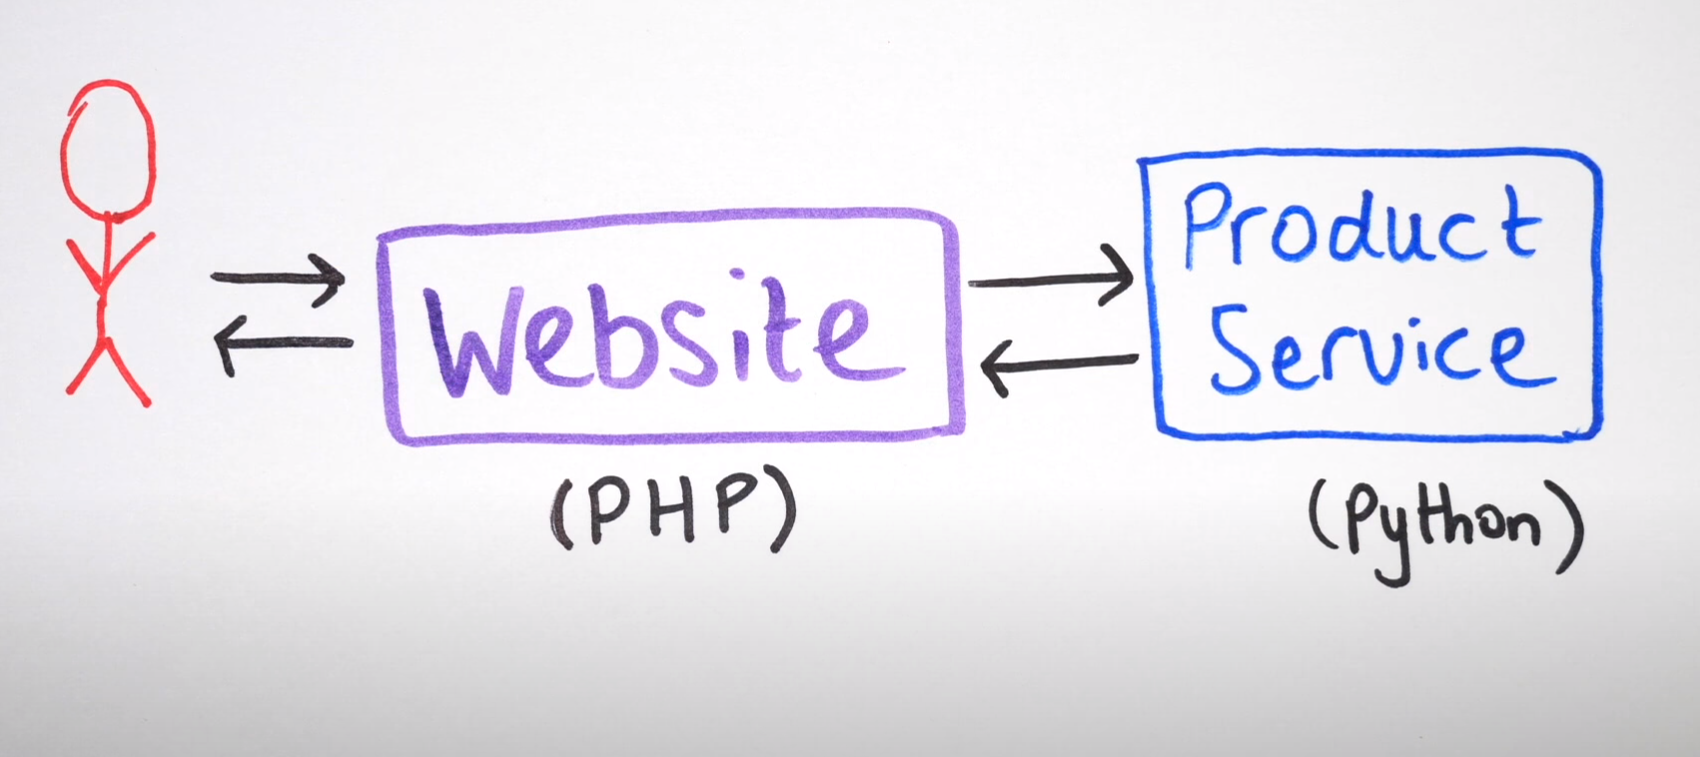 Website
(PHP)
Product
Service
(Python)